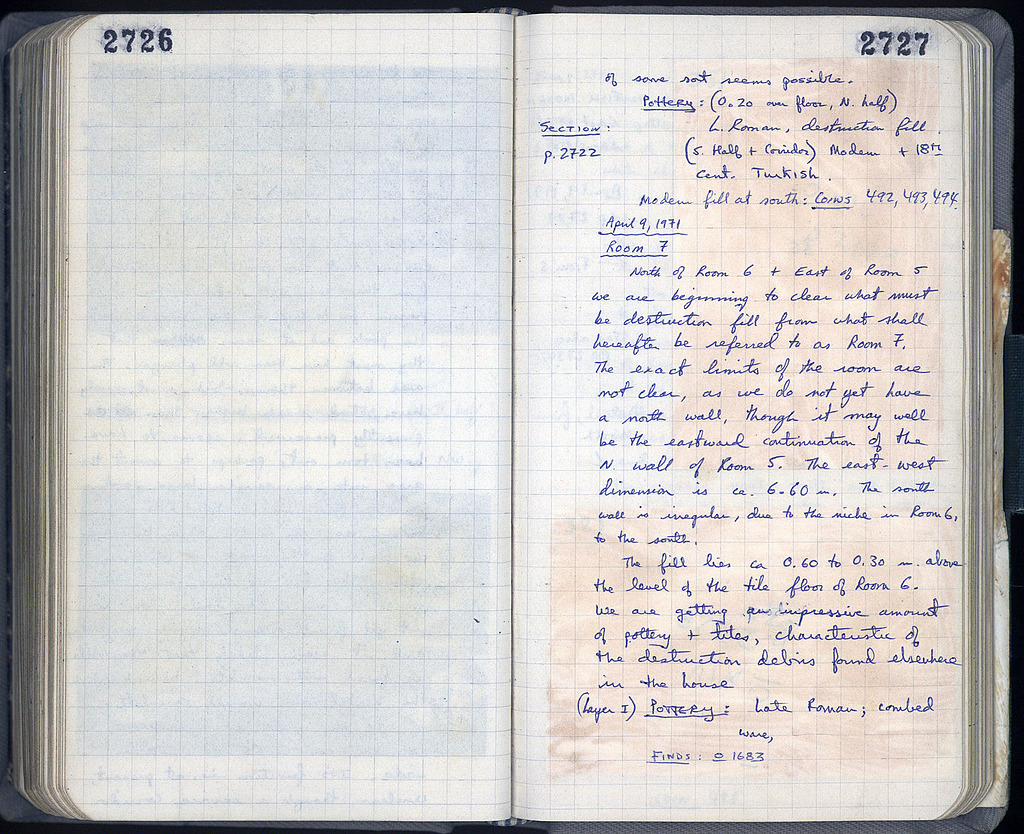 2726
2727
of some sort seems possible.
Pottery: (0.20 over floor, N. half)
L. Roman, destruction fill.
SECTION:
p. 2722
(S. Half + Corridor) Modern + 18th
cent. Turkish.
Modern fill at south: Coins 492, 493, 494.
April 9, 1971
Room 7
North of Room 6 + East of Room 5
we are beginning to clear what must
be destruction fill from what shall
hereafter be referred to as Room 7.
The exact limits of the room are
not clear, as we do not yet have
a north wall, though it may well
be the eastward continuation of the
N. wall of Room 5. The east-west
dimension is ca. 6.60 m. The south
wall is irregular, due to the niche in Room 6,
to the south.
The fill lies ca 0.60 to 0.30 m. above
the level of the tile floor of Room 6.
We are getting an impressive amount
of pottery + tiles, characteristic of
the destruction debris found elsewhere
in the house
(Layer I) POTTERY: Late Roman; combed
ware,
FINDS: 1683